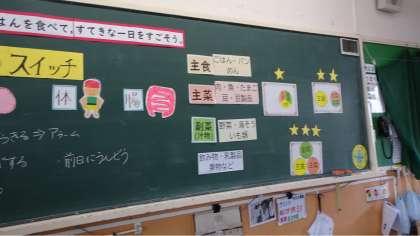 はんを食べて、すてきな一日をすごそう。
スイッチ
体
腸
主食
ごはん・パン
めん
主菜
肉・魚・たまご
豆・豆製品
副菜
(汁物)
野菜・海そう
いも類
飲み物・乳製品
果物など
きる⇒アラーム
する
前日にうんどう